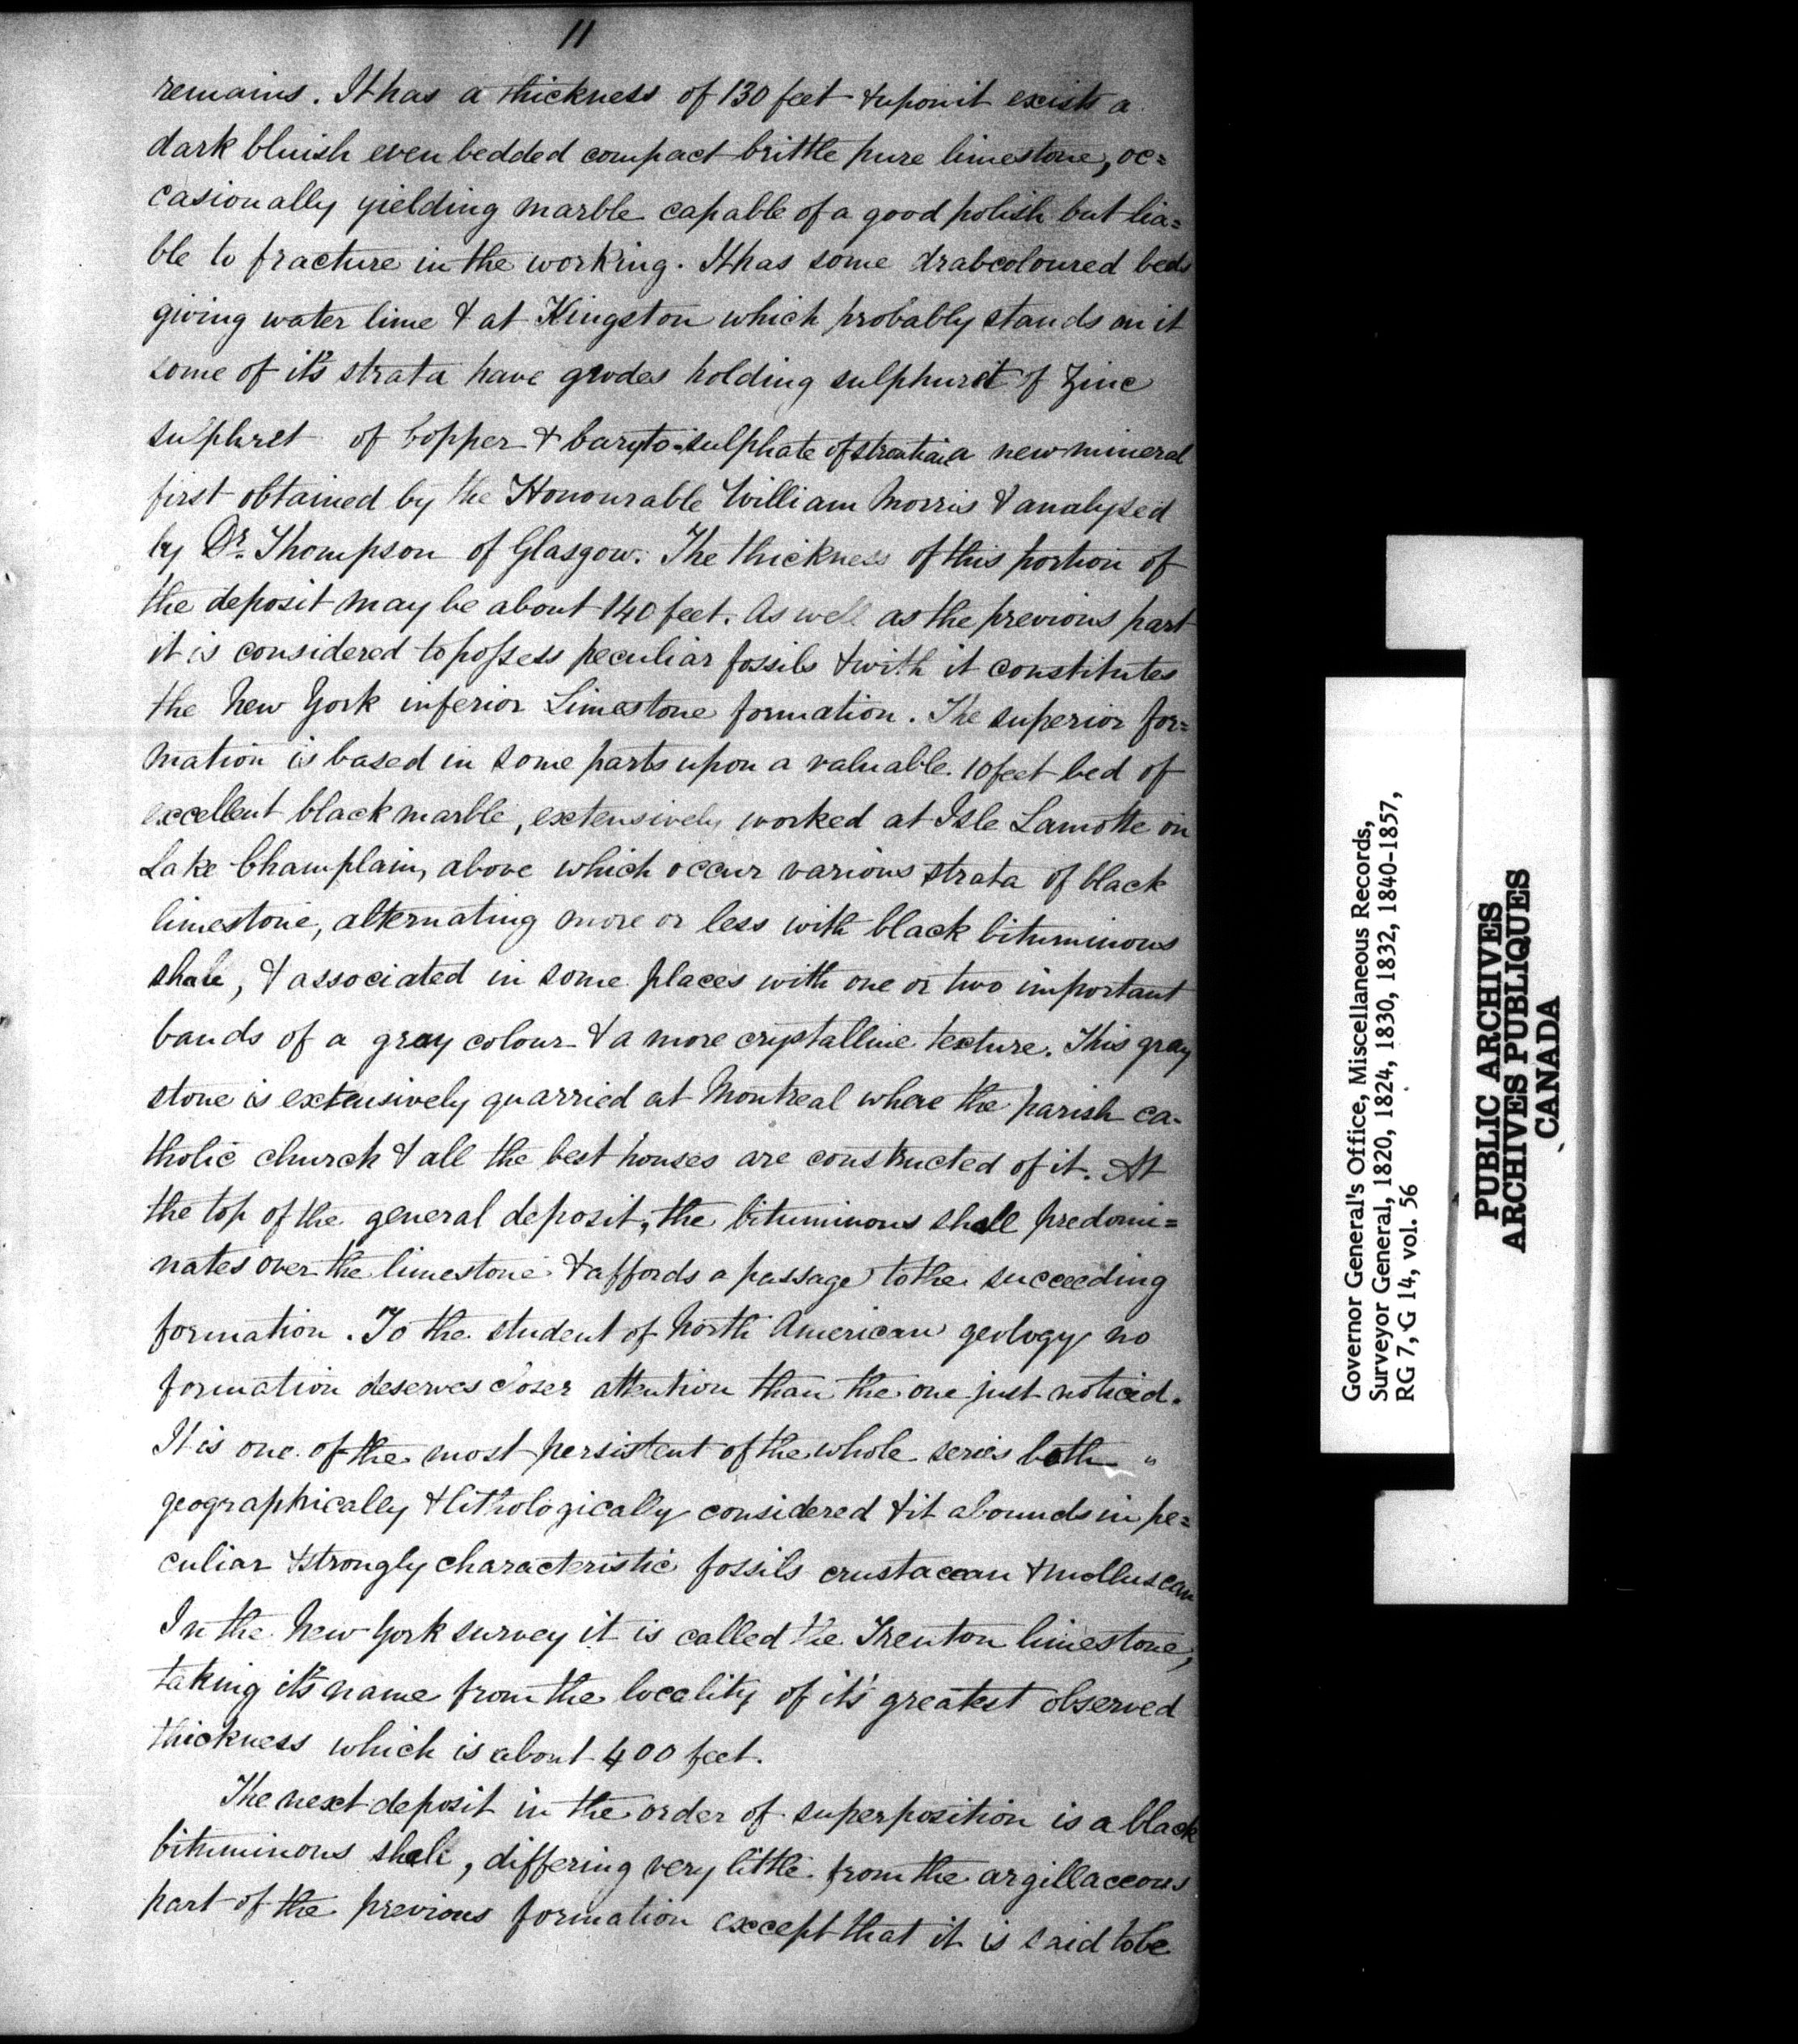 11
remains. It has a thickness of 130 feet & upon it exists a
dark bluish even bedded compact brittle pure limestone, oc=
casionally yielding marble capable of a good polish but lia=
ble to fracture in the working. It has some drabcoloured beds
giving water lime & at Kingston which probably stands on it
some of it's strata have grodes holding sulphuret of Zinc
sulphret of Copper & baryto-sulphate of strontia a new mineral
first obtained by the Honourable William Morris & analyzed
by Dr. Thompson of Glasgow. The thickness of this portion of
the deposit may be about 140 feet. As well as the previous part
it is considered to possess peculiar fossils & with it constitutes
the New York inferior Limestone formation. The superior for=
mation is based in some parts upon a valuable 10 feet bed of
excellent black marble, extensively worked at Isle Lamotte on
Lake Champlain, above which occur various strata of black
limestone, alternating more or less with black bituminous
shale, & associated in some places with one or two important
bands of a gray colour & a more crystalline texture. This gray
stone is extensively quarried at Montreal where the parish ca-
tholic church & all the best houses are constructed of it. At
the top of the general deposit, the bituminous shall predomi=
nates over the limestone & affords a passage to the succeeding
formation. To the student of North American geology no
formation deserves closer attention than the one just noticed.
It is one of the most persistent of the whole series both "
geographically & lithologically considered & it abounds in pe=
culiar & strongly characteristic fossils crustacean & molluscan
In the New York survey it is called the Trenton limestone,
taking it's name from the locality of it's greatest observed
thickness which is about 400 feet.
The next deposit in the order of superposition is a black
bituminous shale, differing very little from the argillaceous
part of the previous formation except that it is said to be
Governor General's Office, Miscellaneous Records,
Surveyor General, 1820, 1824, 1830, 1832, 1840-1857,
RG 7, G 14, vol. 56
PUBLIC ARCHIVES
ARCHIVES PUBLIQUES
CANADA